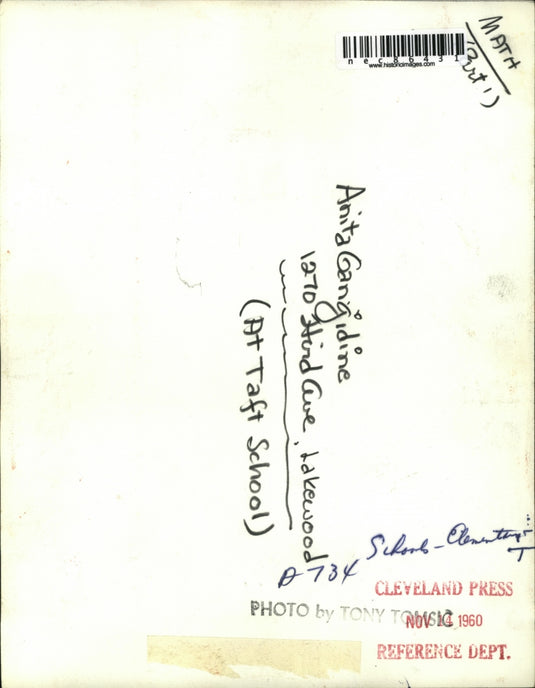 MATH
(Part 1)
nec86431
www.historicimages.com
Anita Gangidine
1270 Hird Ave, Lakewood
(At Taft School)
Schools - Elementary
A-734
CLEVELAND PRESS
PHOTO by TONY TOMSIC
NOV 24 1960
REFERENCE DEPT.